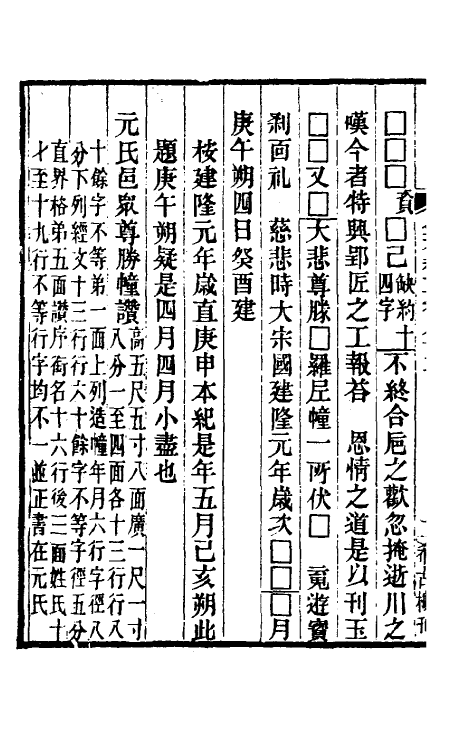 □□□貟□己缺約十四字不終合巵之歡忽掩逝川之
嘆今者特興郢匠之工報荅　恩情之道是以刊玉
□□又□大悲尊勝□羅尼幢一所伏□　䰟遊寳
刹面礼　慈悲時大宋國建隆元年歲次□□□月
庚午朔四日癸酉建
桉建隆元年歲直庚申本紀是年五月己亥朔此
題庚午朔疑是四月四月小盡也
元氏邑眾尊勝幢讚高五尺五寸八面廣一尺一寸
八分一至四面各十三行行八
十餘字不等弟一面上列造幢年月六行字徑八
分下列經文十三行行六十餘字不等字徑五分
直界格弟五面讚序銜名十六行後三面姓氏十
才至十九行不等行字均不一並正書在元氏